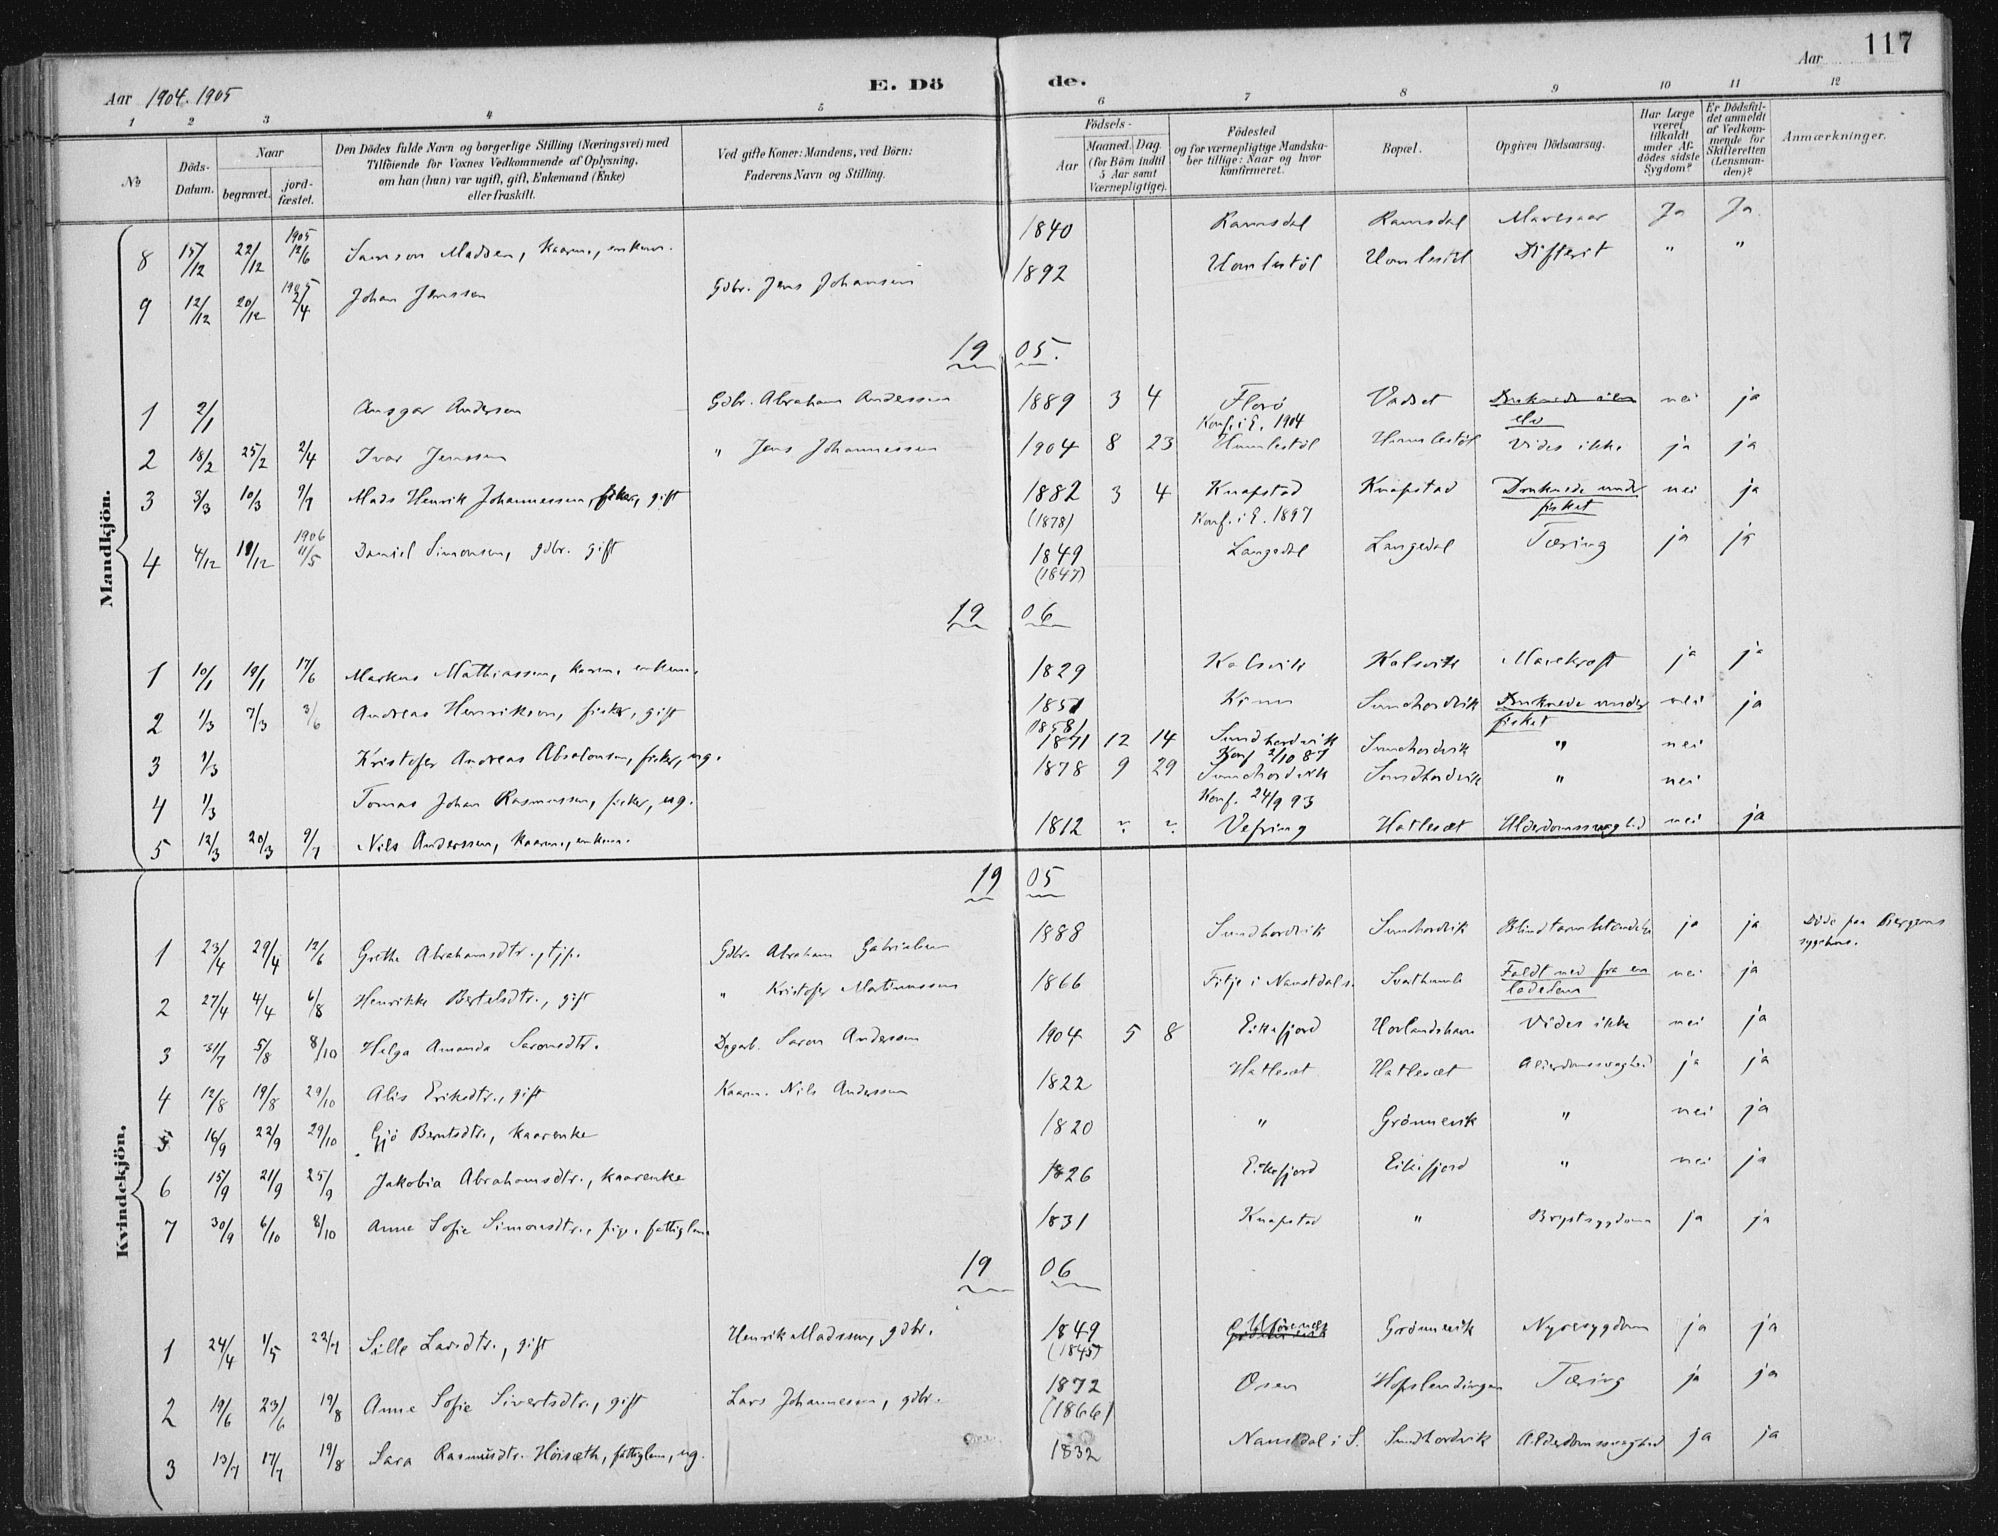 117
Aar 1904. 1905
E. Dö de.
Aar
1 2 3 4 5 6 7 8 9 10 11 12
No
Döds-Datum.
Naar
begravet.
jord-fæstet.
Den Dödes fulde Navn og borgerlige Stilling (Næringsvei) med
Tilföiende for Voxnes Vedkommende af Oplysning,
om han (hun) var ugift, gift, Enkemand (Enke)
eller fraskilt.
Ved gifte Koner: Mandens, ved Börn:
Faderens Navn og Stilling.
Födsels-
Aar
Maaned. Dag.
(for Börn indtil
5 Aar samt
Værnepligtige).
Födested
og for værnepligtige Mandska-
ber tillige: Naar og hvor
konfirmeret.
Bopæl.
Opgiven Dödsaarsag.
Har Læge
været
tilkaldt
under Af-
dödes sidste
Sygdom?
Er Dödsfal-
det anmeldt
af Vedkom-
mende for
Skifteretten
(Lensman-
den)?
Anmærkninger.
Mandkjön.
8 15/12 22/12 1905 12/6 Samson Madsen, kaarm., enkem. 1840 Ramsdal Ramsdal Mavesaar Ja Ja
9 12/12 20/12 1905 2/4 Johan Jenssen Gdbr. Jens Johansen 1892 Humlestöl Humlestöl Difterit " "
19 05.
1 2/1 Ansgar Andersen Gdbr. Abraham Anderssen 1889 3 4 Florö Konf. i E. 1904 Vadset Druknede i en elv nei ja
2 18/2 25/2 2/4 Ivar Jenssen " Jens Johannessen 1904 8 23 Humlestöl Humlestöl Vides ikke ja ja
3 3/3 10/3 9/7 Mads Henrik Johannessen, fisker, gift 1882 (1878) 3 4 Knapstad Konf. i E. 1897 Knapstad Druknede under fisket nei ja
4 4/12 11/12 1906 11/5 Daniel Simonsen, gdbr. gift 1849 (1847) Langedal Langedal Tæring ja ja
19 06
1 10/1 19/1 17/6 Markus Mathiassen, kaarm. enkem. 1829 Kalsvik Kalsvik Mavekræft ja ja
2 1/3 7/3 3/6 Andreas Henriksen, fisker, gift 1851 1858 Kinn Sundhordvik Druknede under fisket nei ja
3 1/3 Kristofer Andreas Absalonsen, fisker, ug. 1871 12 14 Sundhordvik Konf 2/10 87 Sundhordvik " nei
4 1/3 Tomas Johan Rasmussen, fisker, ug. 1878 9 29 Sundhordvik Konf. 24/9 93 Sundhordvik " nei
5 12/3 20/3 9/7 Nils Anderssen, kaarm., enkem. 1812 ? ? Vefring Hatleset Alderdomssvaghed nei ja
Kvindekjön.
19 05
1 23/4 29/4 12/6 Grethe Abrahamsdtr., tjp. Gdbr. Abraham Gabrielsen 1888 Sundhordvik Sundhordvik Blindtarmbetændelse ja ja Döde paa Bergens sygehus.
2 27/4 4/4 6/8 Henrikke Bertelsdtr., gift " Kristofer Martinussen 1866 Fitje i Namstdal s. Svarthumle Faldt ned fra en ladelem nei ja
3 31/7 5/8 8/10 Helga Amanda Saronsdtr. Dagarb. Saron Anderssen 1904 5 8 Eikefjord Hovlandshavn Vides ikke nei ja
4 12/8 19/8 29/10 Alis Eriksdtr., gift Kaarm. Nils Anderssen 1822 Hatleset Hatleset Alderdomssvaghed ja ja
5 16/9 22/9 29/10 Gjö Berntsdtr., kaarenke 1820 " Grönnevik " nei ja
6 15/9 21/9 25/9 Jakobia Abrahamsdtr., kaarenke 1826 Eikefjord Eikefjord " nei ja
7 30/9 6/10 8/10 Anne Sofie Simonsdtr., pige, fattiglem. 1831 Knapstad " Brystsygdom ja ja
19 06
1 24/4 1/5 22/7 Sille Larsdtr., gift Henrik Madssen, gdbr. 1849 (1845) Grönnevik Nyresygdom ja ja
2 19/6 23/6 19/8 Anne Sofie Sivertsdtr., gift Lars Johannesen, gdbr. 1872 (1866) Osen Hopslendingen Tæring ja ja
3 13/7 17/7 19/8 Sara Rasmusdtr. Höisæth, fattiglem, ug. 1832 Namstdal i S. Sundhordvik Alderdomssvaghed ja ja